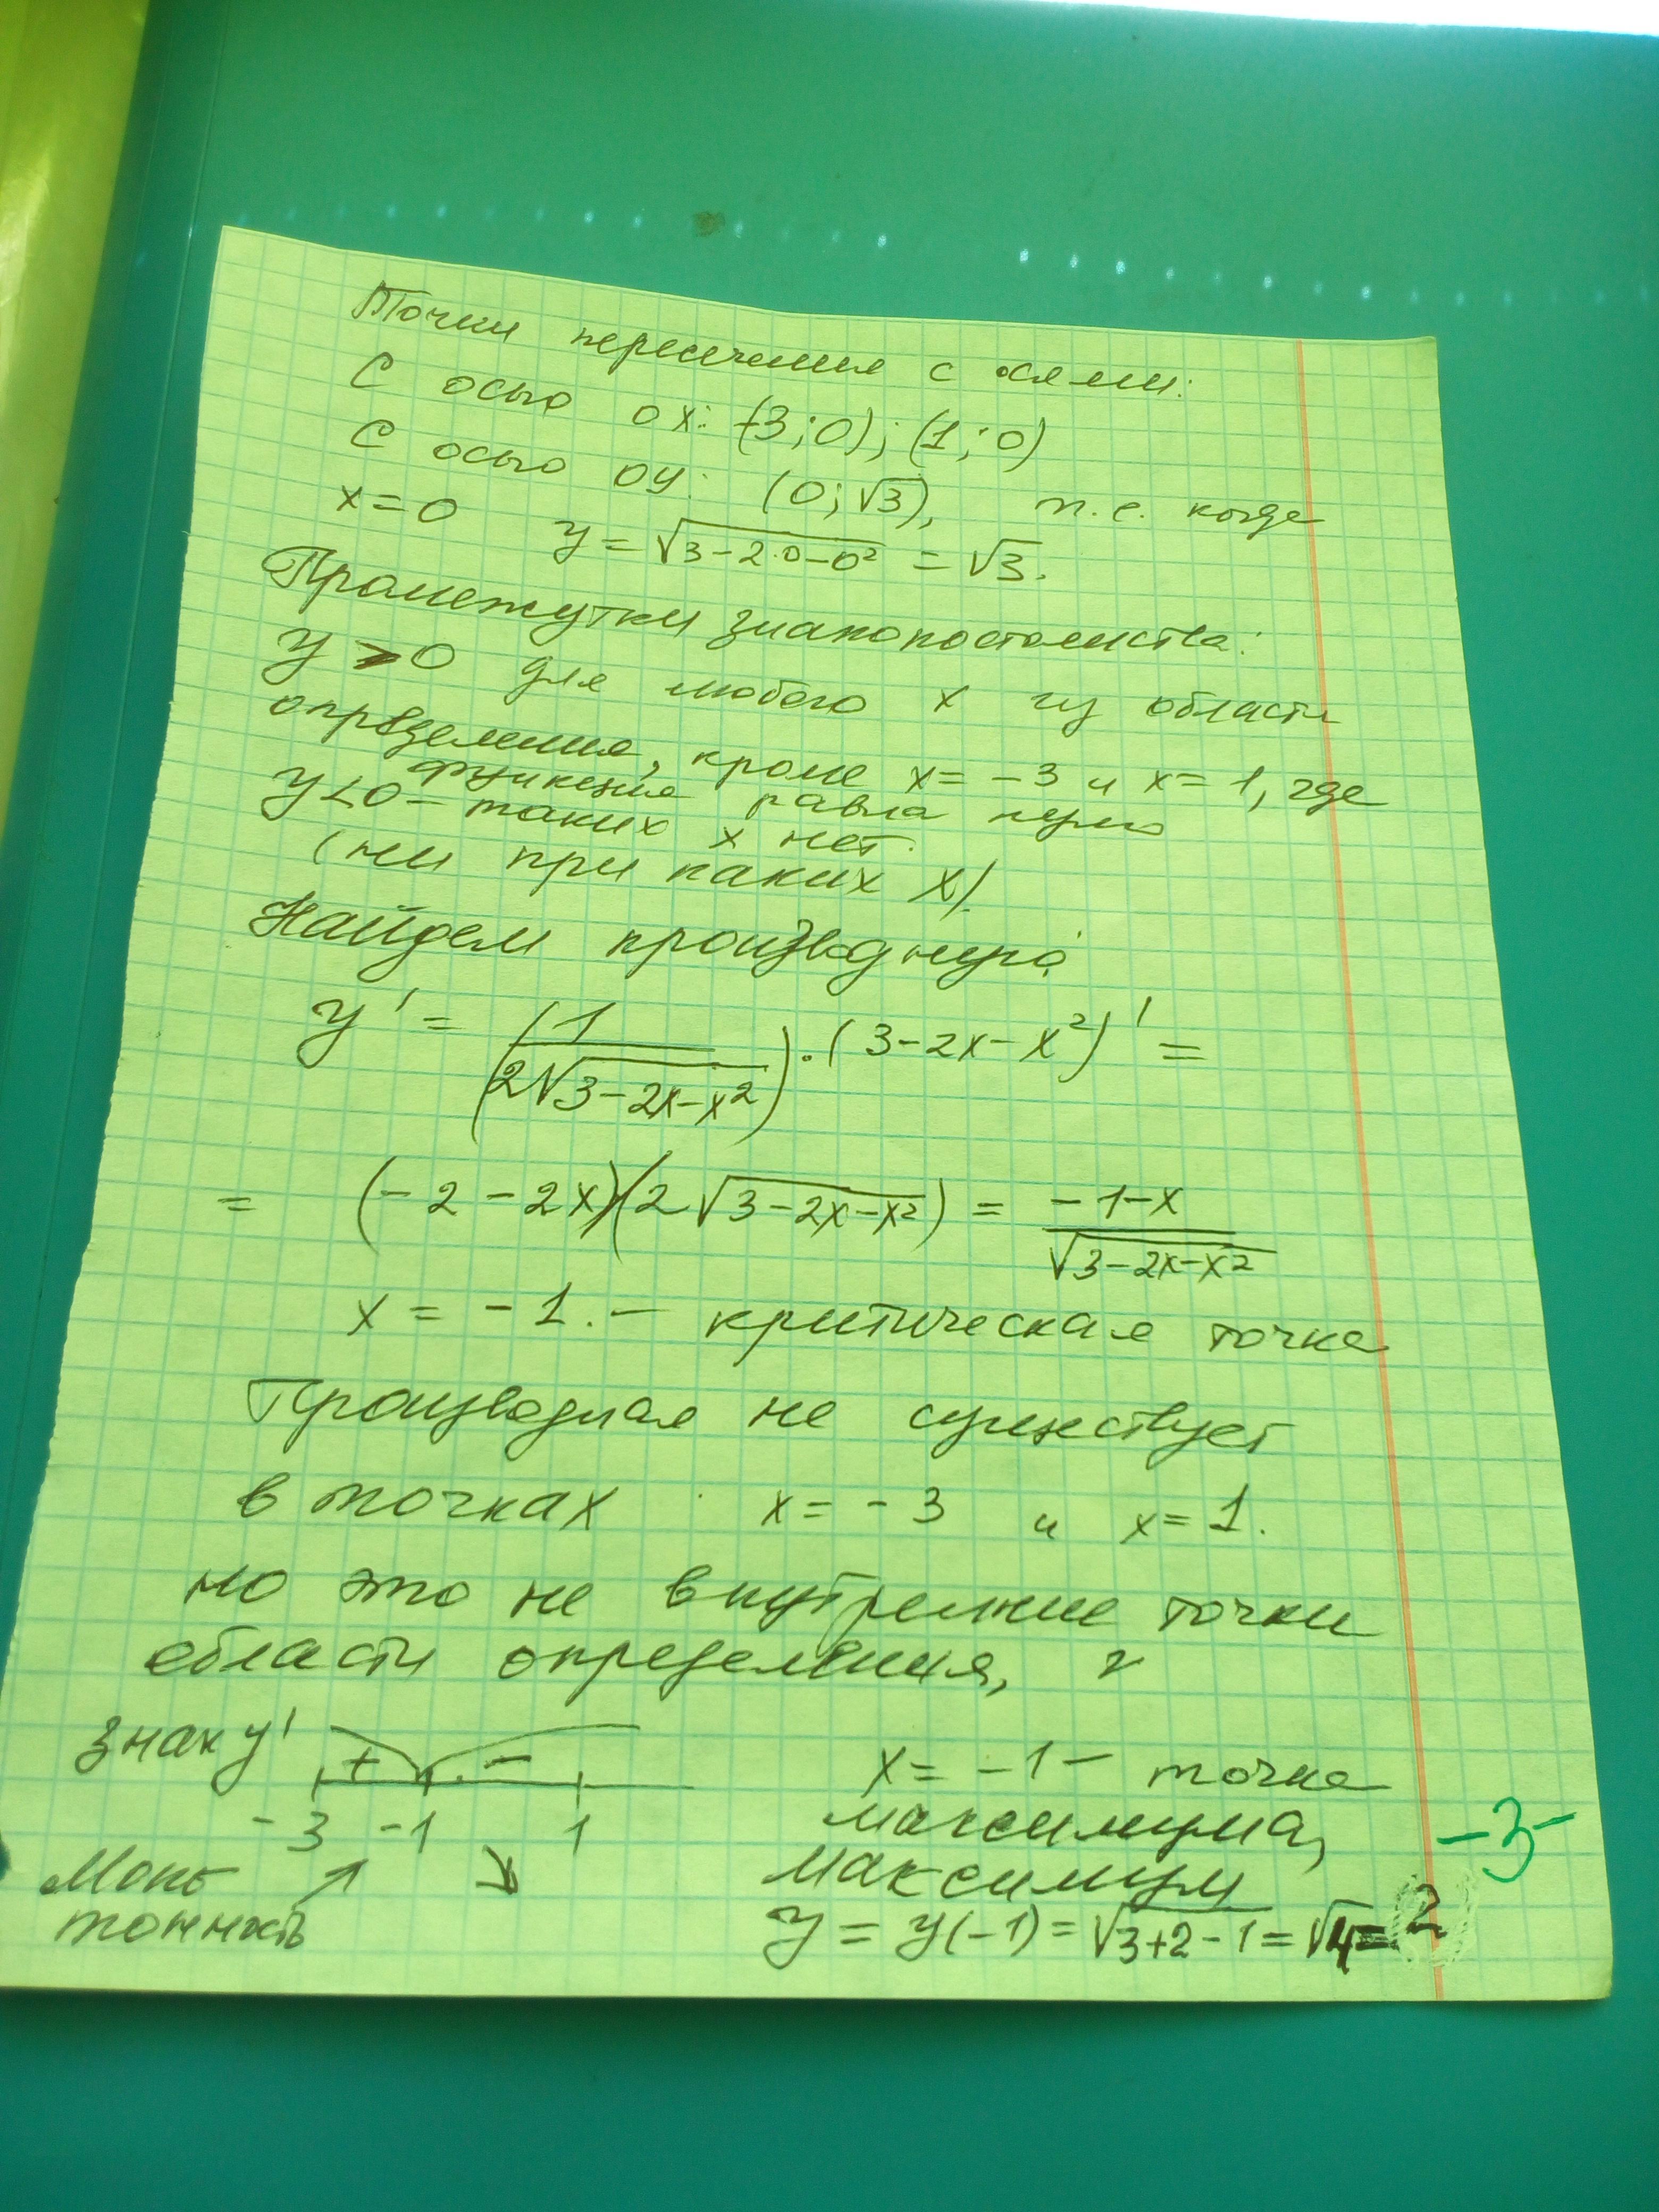 Точки пересечения с осями:
С осью ox: (-3;0); (1;0)
С осью oy: (0;√3), т.е. когда
x=0 y=√(3-2·0-0²) = √3.
Промежутки знакопостоянства:
y>0 для любого x из области
определения, кроме x=-3 и x=1, где
функция равна нулю
y<0 - таких x нет.
(ни при каких x).
Найдем производную
y' = (1/(2√(3-2x-x²)))·(3-2x-x²)' =
= (-2-2x)/(2√(3-2x-x²)) = (-1-x)/√(3-2x-x²)
x = -1. - критическая точка
Производная не существует
в точках x = -3 и x = 1.
но это не внутренние точки
области определения,
знак y' + -
-3 -1 1
Моно- ↗ ↘
тонность
x = -1 - точка
максимума,
максимум
y = y(-1) = √(3+2-1) = √4 = 2
-3-